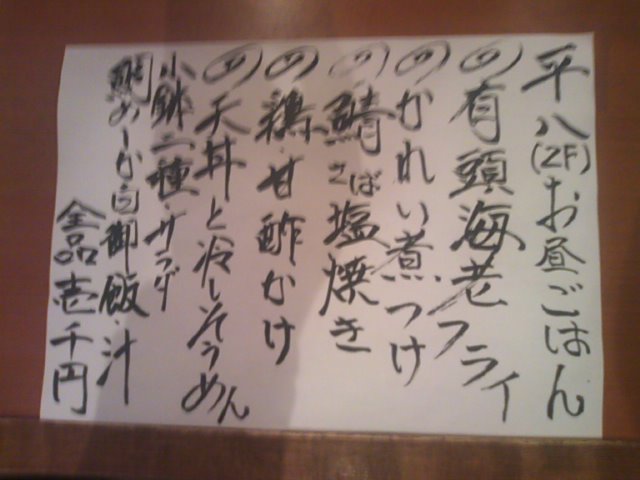 平八(2F)お昼ごはん
㋺有頭海老フライ
㋺かれい煮つけ
㋺鯖さば塩焼き
㋺鶏・甘酢かけ
㋺天丼と冷しそうめん
小鉢二種・サラダ
鯛めしか白御飯・汁
全品壱千円